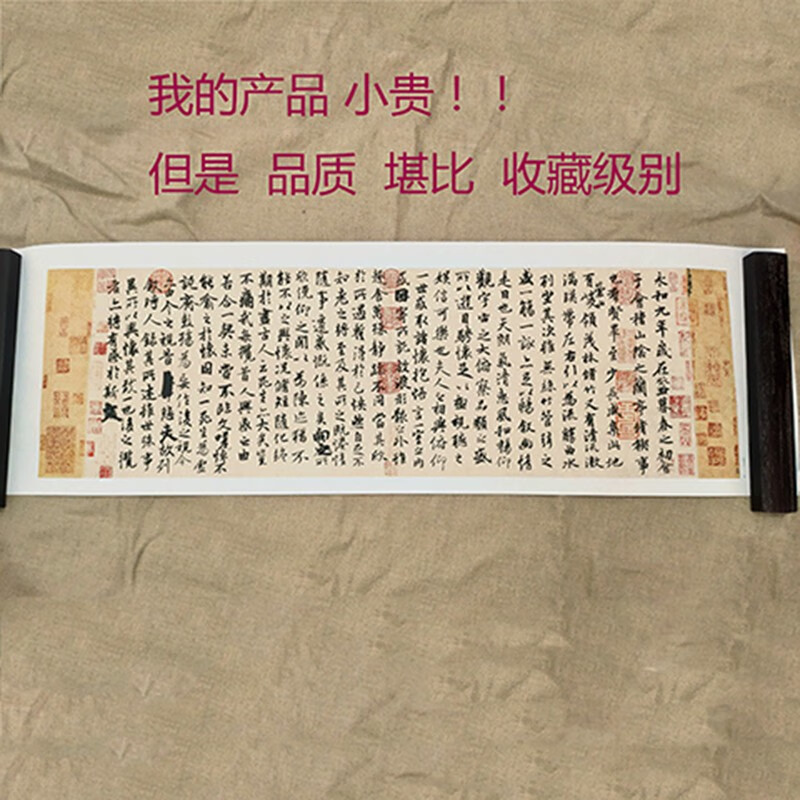 我的产品 小贵！！
但是 品质 堪比 收藏级别
永和九年歲在癸丑暮春之初會
于會稽山陰之蘭亭脩稧事
也羣賢畢至少長咸集此地
有崇山峻領茂林脩竹又有清流激
湍暎帶左右引以為流觴曲水
列坐其次雖無絲竹管弦之
盛一觴一詠亦足以暢敘幽情
是日也天朗氣清惠風和暢仰
觀宇宙之大俯察品類之盛
所以遊目騁懷足以極視聽之
娛信可樂也夫人之相與俯仰
一世或取諸懷抱悟言一室之內
或因寄所託放浪形骸之外雖
趣舍萬殊靜躁不同當其欣
於所遇暫得於己怏然自足不
知老之將至及其所之既惓情
隨事遷感慨係之矣向之所
欣俛仰之閒以為陳迹猶不
能不以之興懷況脩短隨化終
期於盡古人云死生亦大矣豈
不痛哉每攬昔人興感之由
若合一契未嘗不臨文嗟悼不
能喻之於懷固知一死生為虛
誕齊彭殤為妄作後之視今
亦由今之視昔悲夫故列
敘時人錄其所述雖世殊事
異所以興懷其致一也後之攬
者亦將有感於斯文